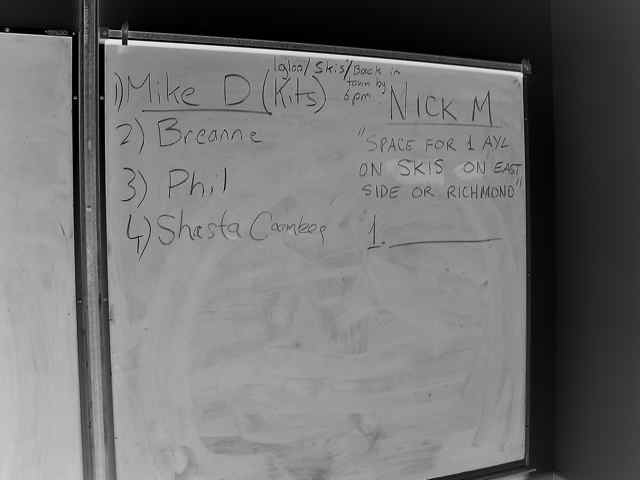 1) Mike D (Kits)
Igloo/Skis/Back in
town by
6pm
2) Breanne
3) Phil
4) Shasta
NICK M
"SPACE FOR 1 AYL
ON SKIS ON EAST
SIDE OR RICHMOND"
1.